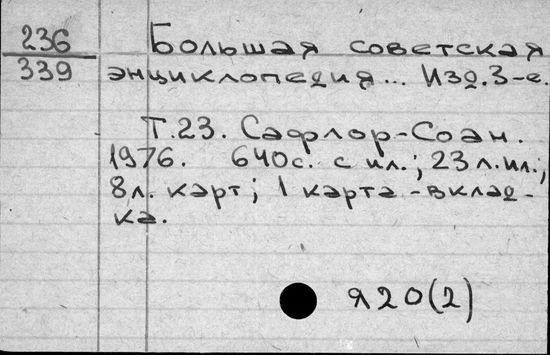 236 Большая советская
339 энциклопедия... Изд. 3-е.
Т.23. Сафлор-Соан.
1976. 640с. с ил.; 23 л. ил.;
8л. карт; 1 карта-вклад-
ка.
Я20(2)